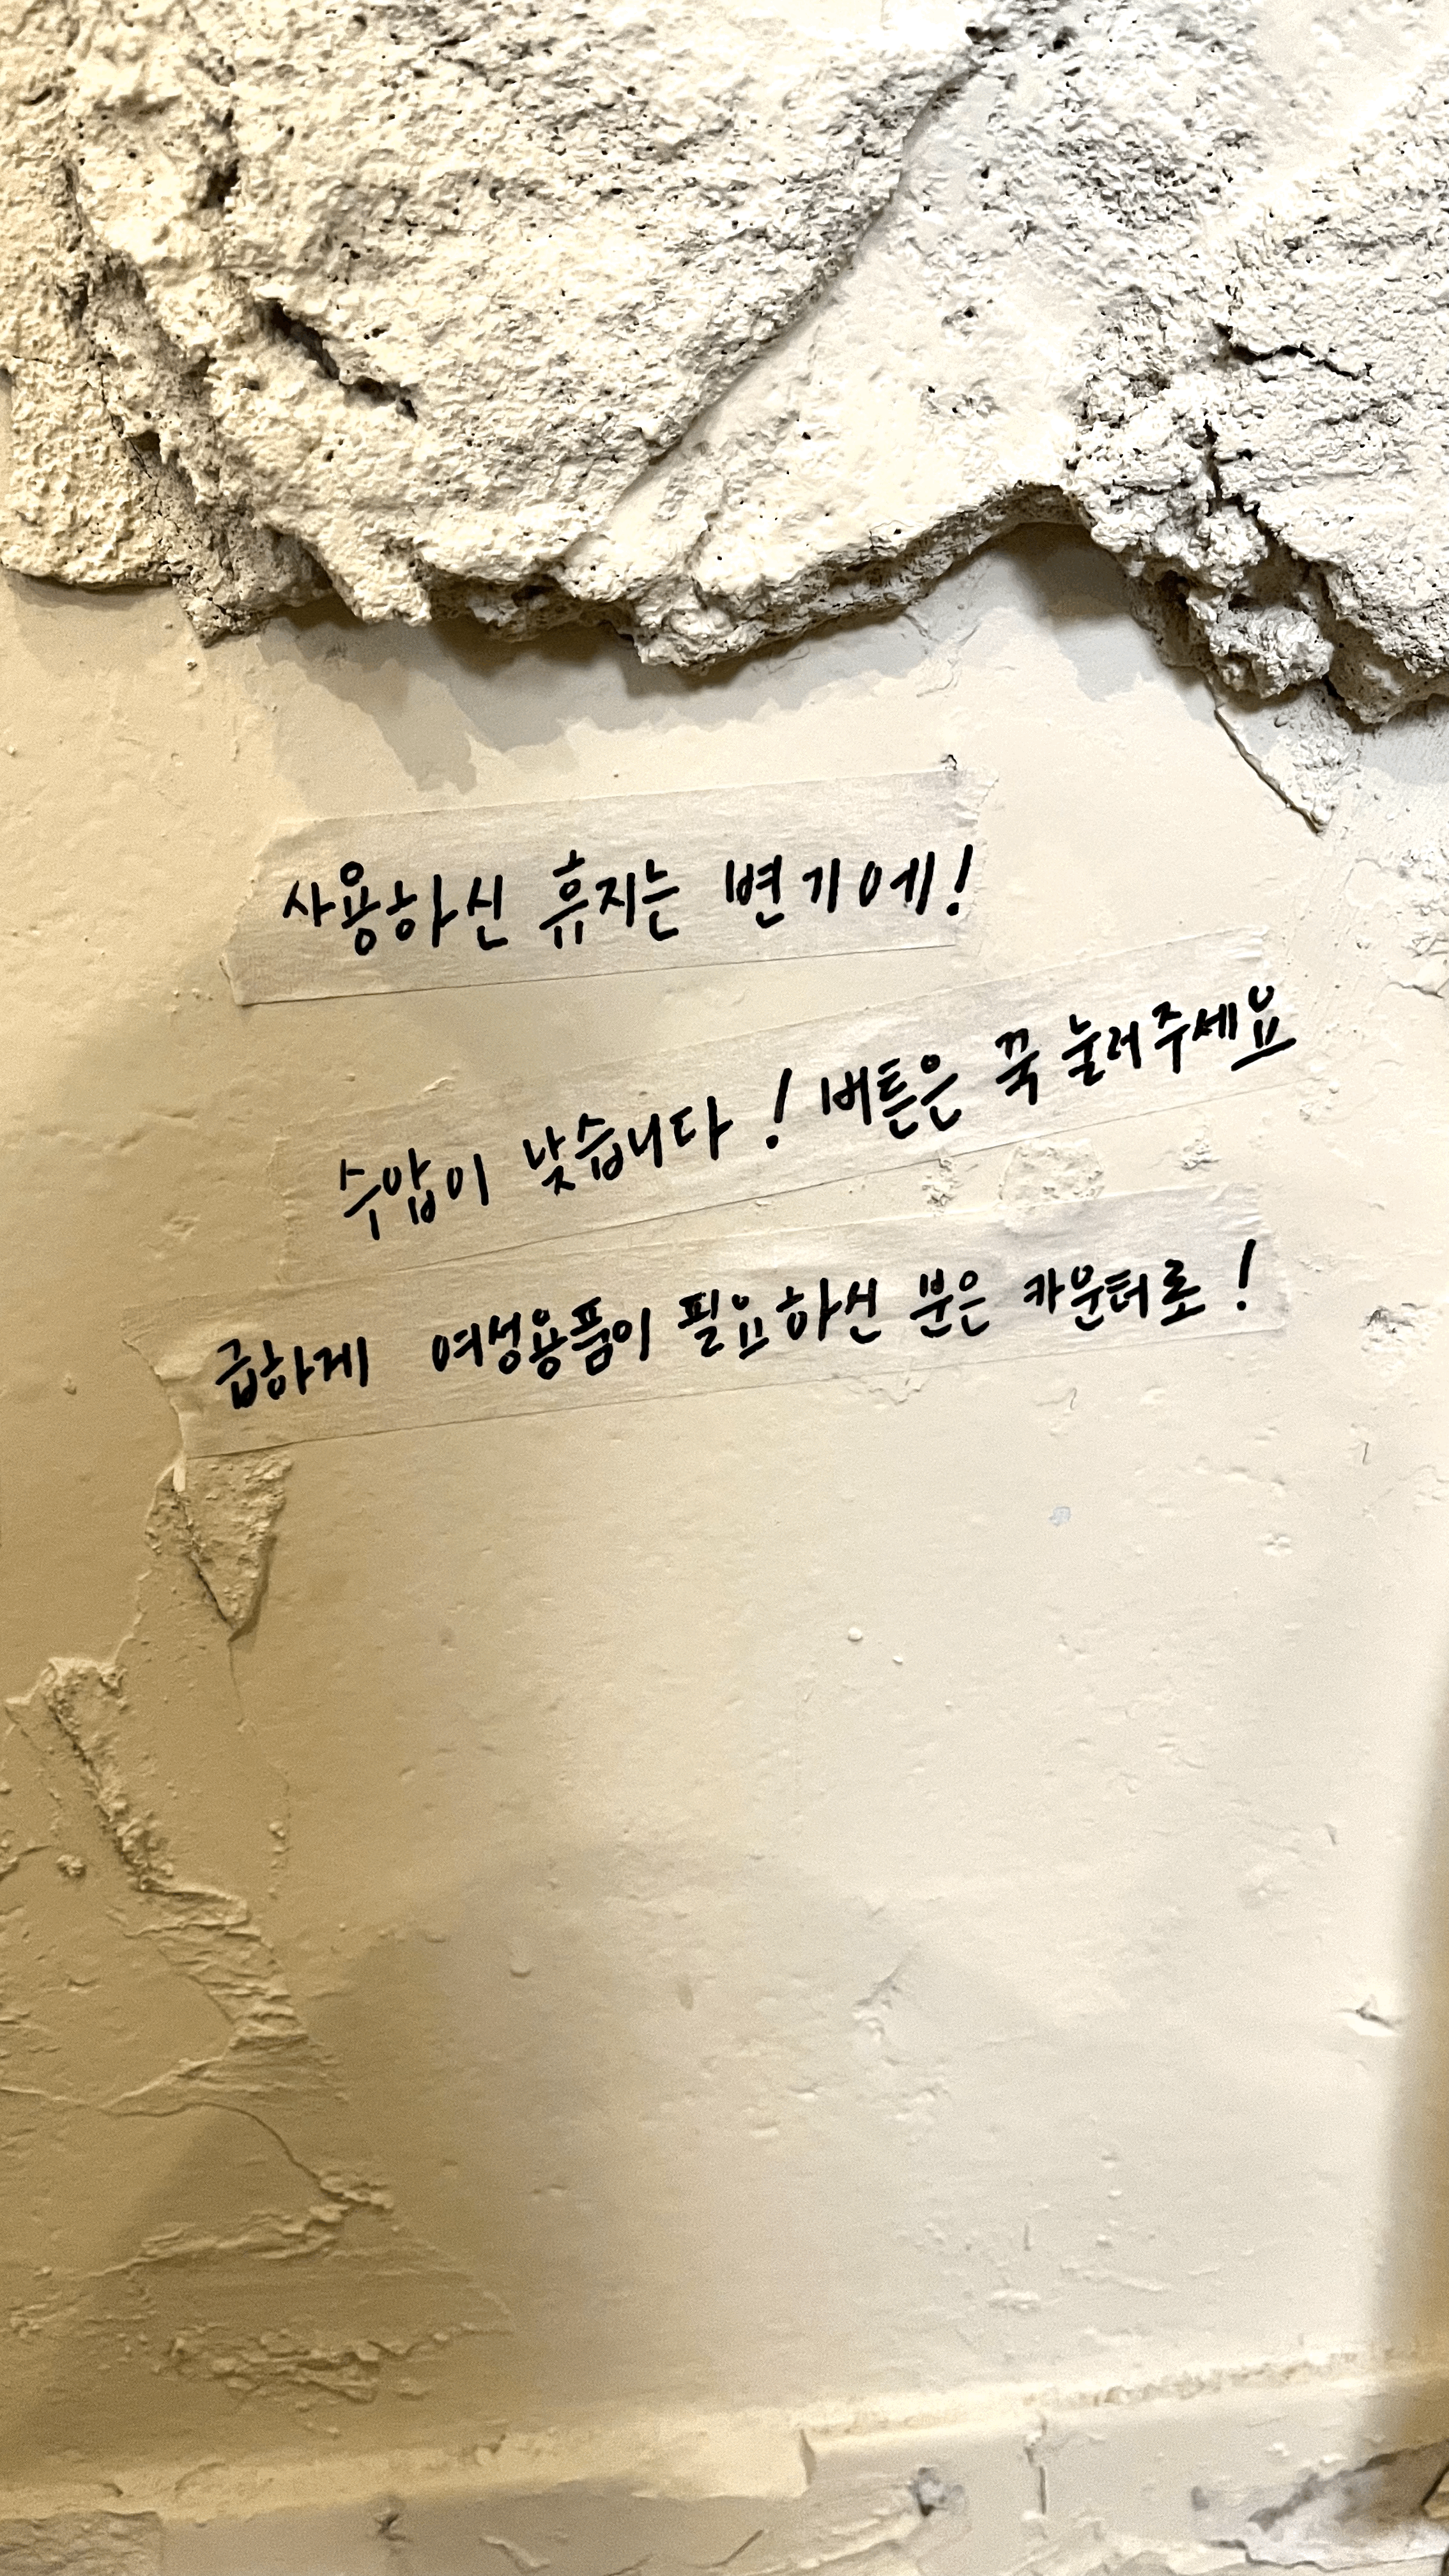 사용하신 휴지는 변기에!
수압이 낮습니다! 버튼은 꾹 눌러주세요
급하게 여성용품이 필요하신 분은 카운터로!